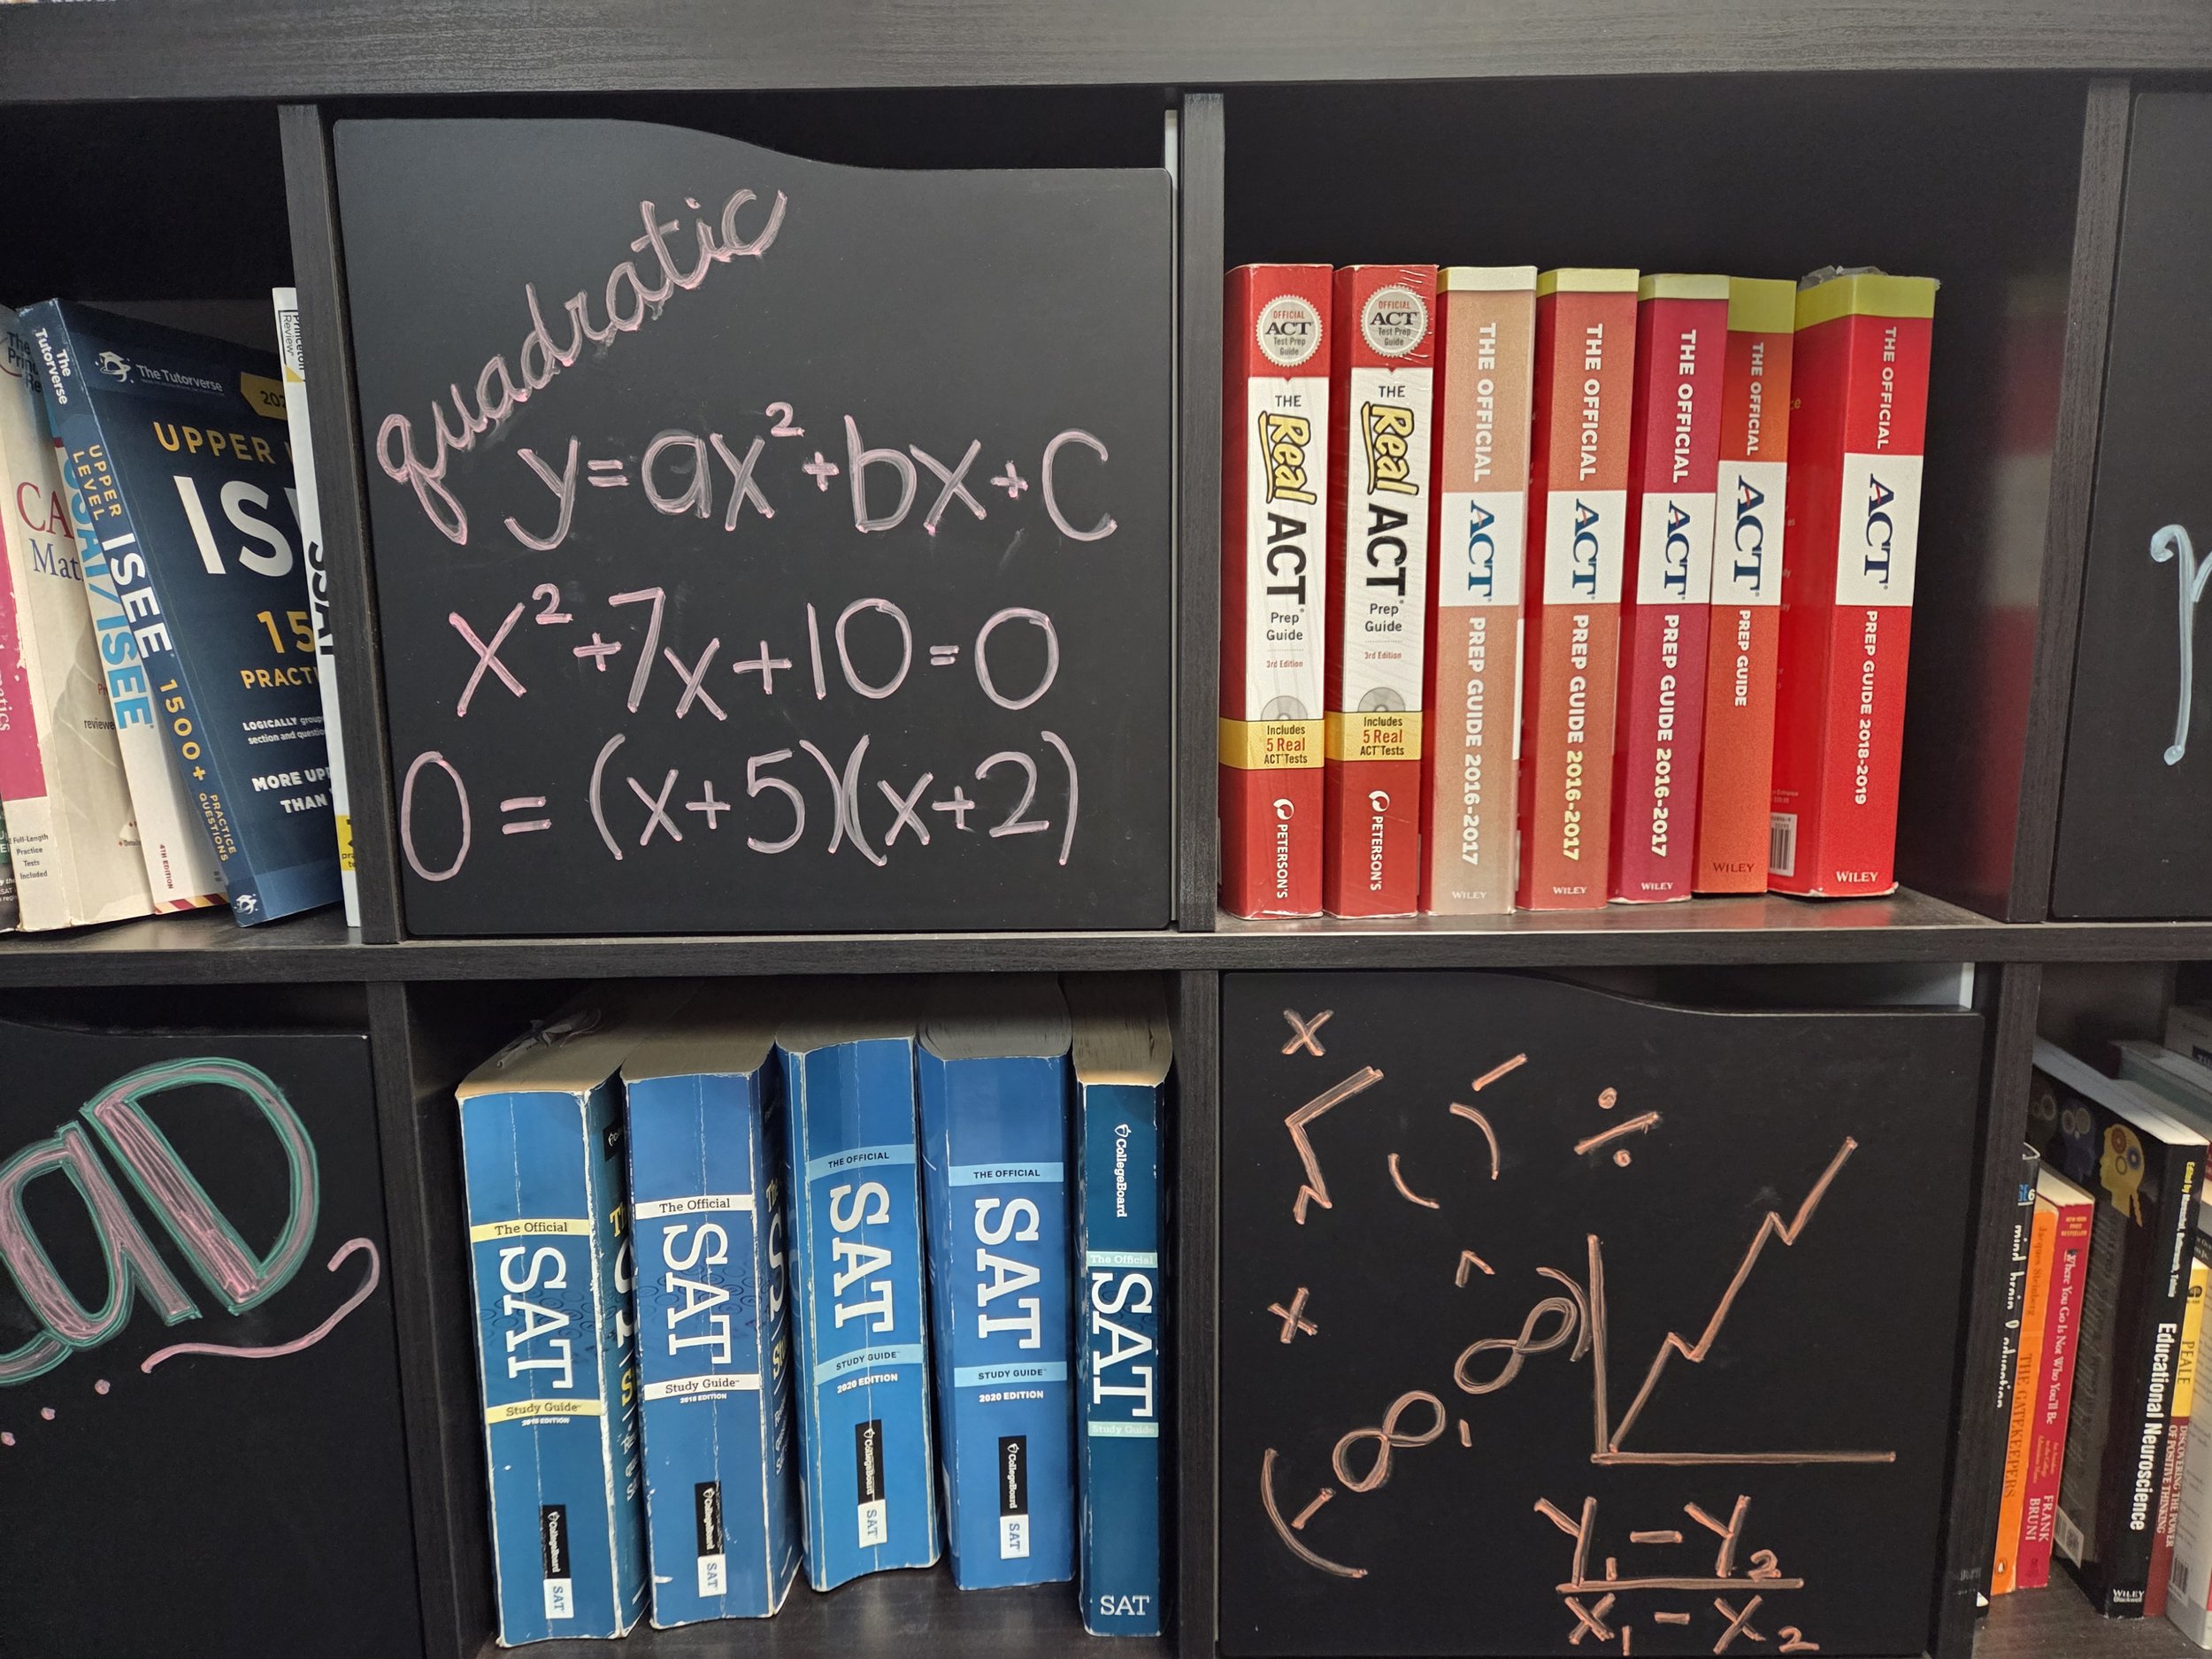 The Tutorverse
UPPER LEVEL ISEE 1500+ PRACTICE QUESTIONS
The Tutorverse
UPPER
PRACT
LOGICALLY
section and
MORE
THAN
Review
SSAT/ISEE
4TH EDITION
Full-Length
Practice
Tests
Included
quadratic
y=ax²+bx+c
x²+7x+10=0
0=(x+5)(x+2)
OFFICIAL ACT Test Prep Guide
THE Real ACT Prep Guide
3rd Edition
Includes 5 Real ACT Tests
PETERSON'S
OFFICIAL ACT Test Prep Guide
THE Real ACT Prep Guide
3rd Edition
Includes 5 Real ACT Tests
PETERSON'S
THE OFFICIAL ACT PREP GUIDE 2016-2017 WILEY
THE OFFICIAL ACT PREP GUIDE 2016-2017 WILEY
THE OFFICIAL ACT PREP GUIDE 2016-2017 WILEY
THE OFFICIAL ACT PREP GUIDE WILEY
THE OFFICIAL ACT PREP GUIDE 2018-2019 WILEY
aD
The Official SAT Study Guide 2018 EDITION CollegeBoard SAT
The Official SAT Study Guide 2018 EDITION CollegeBoard SAT
THE OFFICIAL SAT STUDY GUIDE 2020 EDITION CollegeBoard SAT
THE OFFICIAL SAT STUDY GUIDE 2020 EDITION CollegeBoard SAT
CollegeBoard The Official SAT Study Guide SAT
x
÷
x
(-∞, ∞)
Y₁-Y₂
X₁-X₂
THE GATEKEEPERS
Where You Go Is Not Who You'll Be FRANK BRUNI
Educational Neuroscience WILEY Blackwell
PEALE
DISCOVERING THE POWER OF POSITIVE THINKING